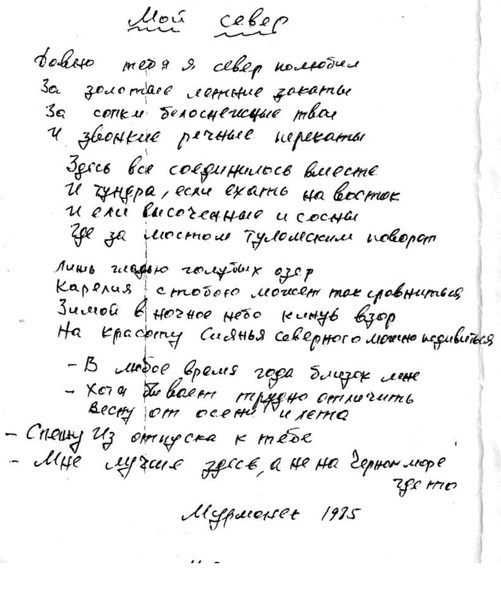 Мой север
Давно тебя я север полюбил
За золотые летние закаты
За сопки белоснежные твои
И звонкие речные перекаты
Здесь все соединилось вместе
И тундра, если ехать на восток
И ели височенные и сосны
Где за мостом Туломским поворот
Лишь гладью голубых озер
Карелия с тобою может так сравниться
Зимой в ночное небо кинув взор
На красоту Сиянья северного можно подивиться
- В любое время года близок мне
- Хотя бывает трудно отличить
Весну от осени и лета
- Спешу из отпуска к тебе
- Мне лучше здесь, а не на Черном море
где то
Мурманск 1985